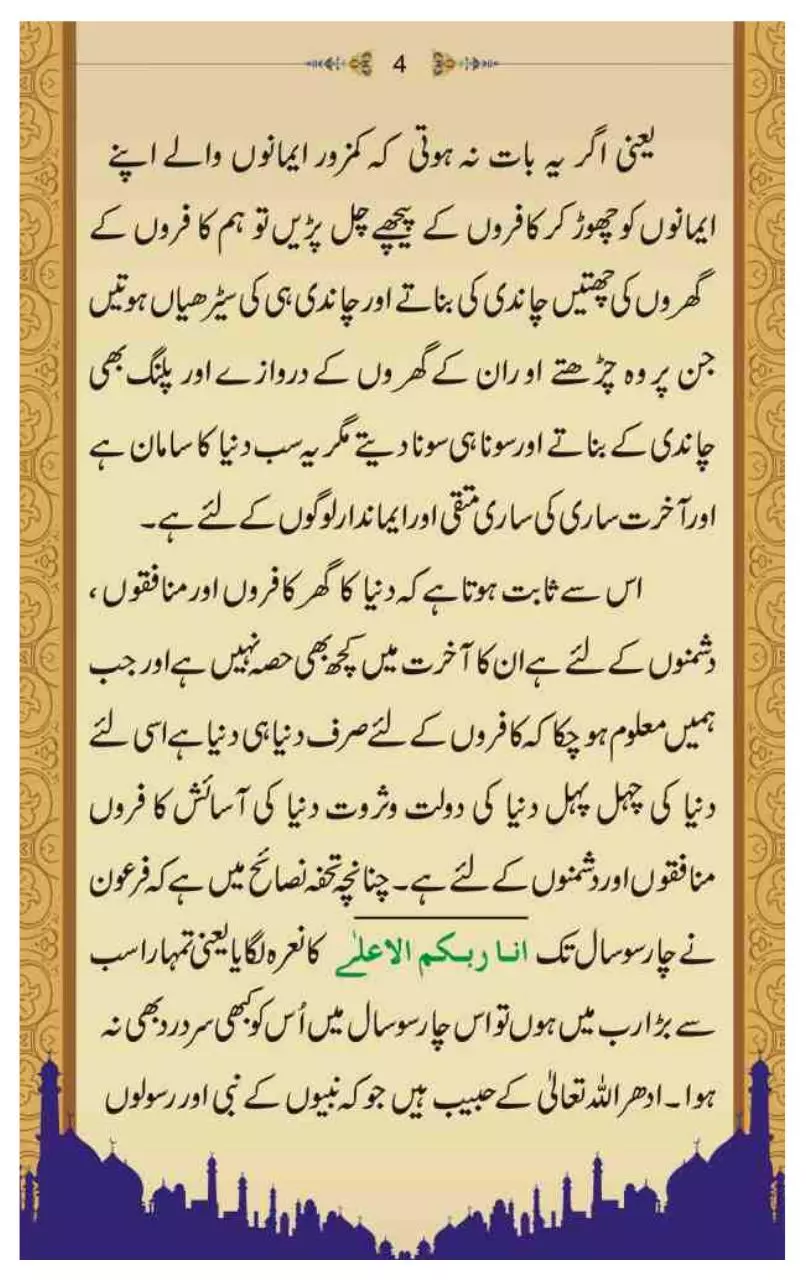 4
یعنی اگر یہ بات نہ ہوتی کہ کمزور ایمانوں والے اپنے
ایمانوں کو چھوڑ کر کافروں کے پیچھے چل پڑیں تو ہم کافروں کے
گھروں کی چھتیں چاندی کی بناتے اور چاندی ہی کی سیڑھیاں ہوتیں
جن پر وہ چڑھتے اور ان کے گھروں کے دروازے اور پلنگ بھی
چاندی کے بناتے اور سونا ہی سونا دیتے مگر یہ سب دنیا کا سامان ہے
اور آخرت ساری کی ساری متقی اور ایماندار لوگوں کے لئے ہے۔
اس سے ثابت ہوتا ہے کہ دنیا کا گھر کافروں اور منافقوں ،
دشمنوں کے لئے ہے ان کا آخرت میں کچھ بھی حصہ نہیں ہے اور جب
ہمیں معلوم ہو چکا کہ کافروں کے لئے صرف دنیا ہی دنیا ہے اسی لئے
دنیا کی چہل پہل دنیا کی دولت وثروت دنیا کی آسائش کافروں
منافقوں اور دشمنوں کے لئے ہے۔ چنانچہ تحفہ نصائح میں ہے کہ فرعون
نے چار سو سال تک انا ربکم الاعلےٰ کا نعرہ لگایا یعنی تمہارا سب
سے بڑا رب میں ہوں تو اس چار سو سال میں اُس کو کبھی سر درد بھی نہ
ہوا۔ ادھر اللہ تعالیٰ کے حبیب ہیں جو کہ نبیوں کے نبی اور رسولوں